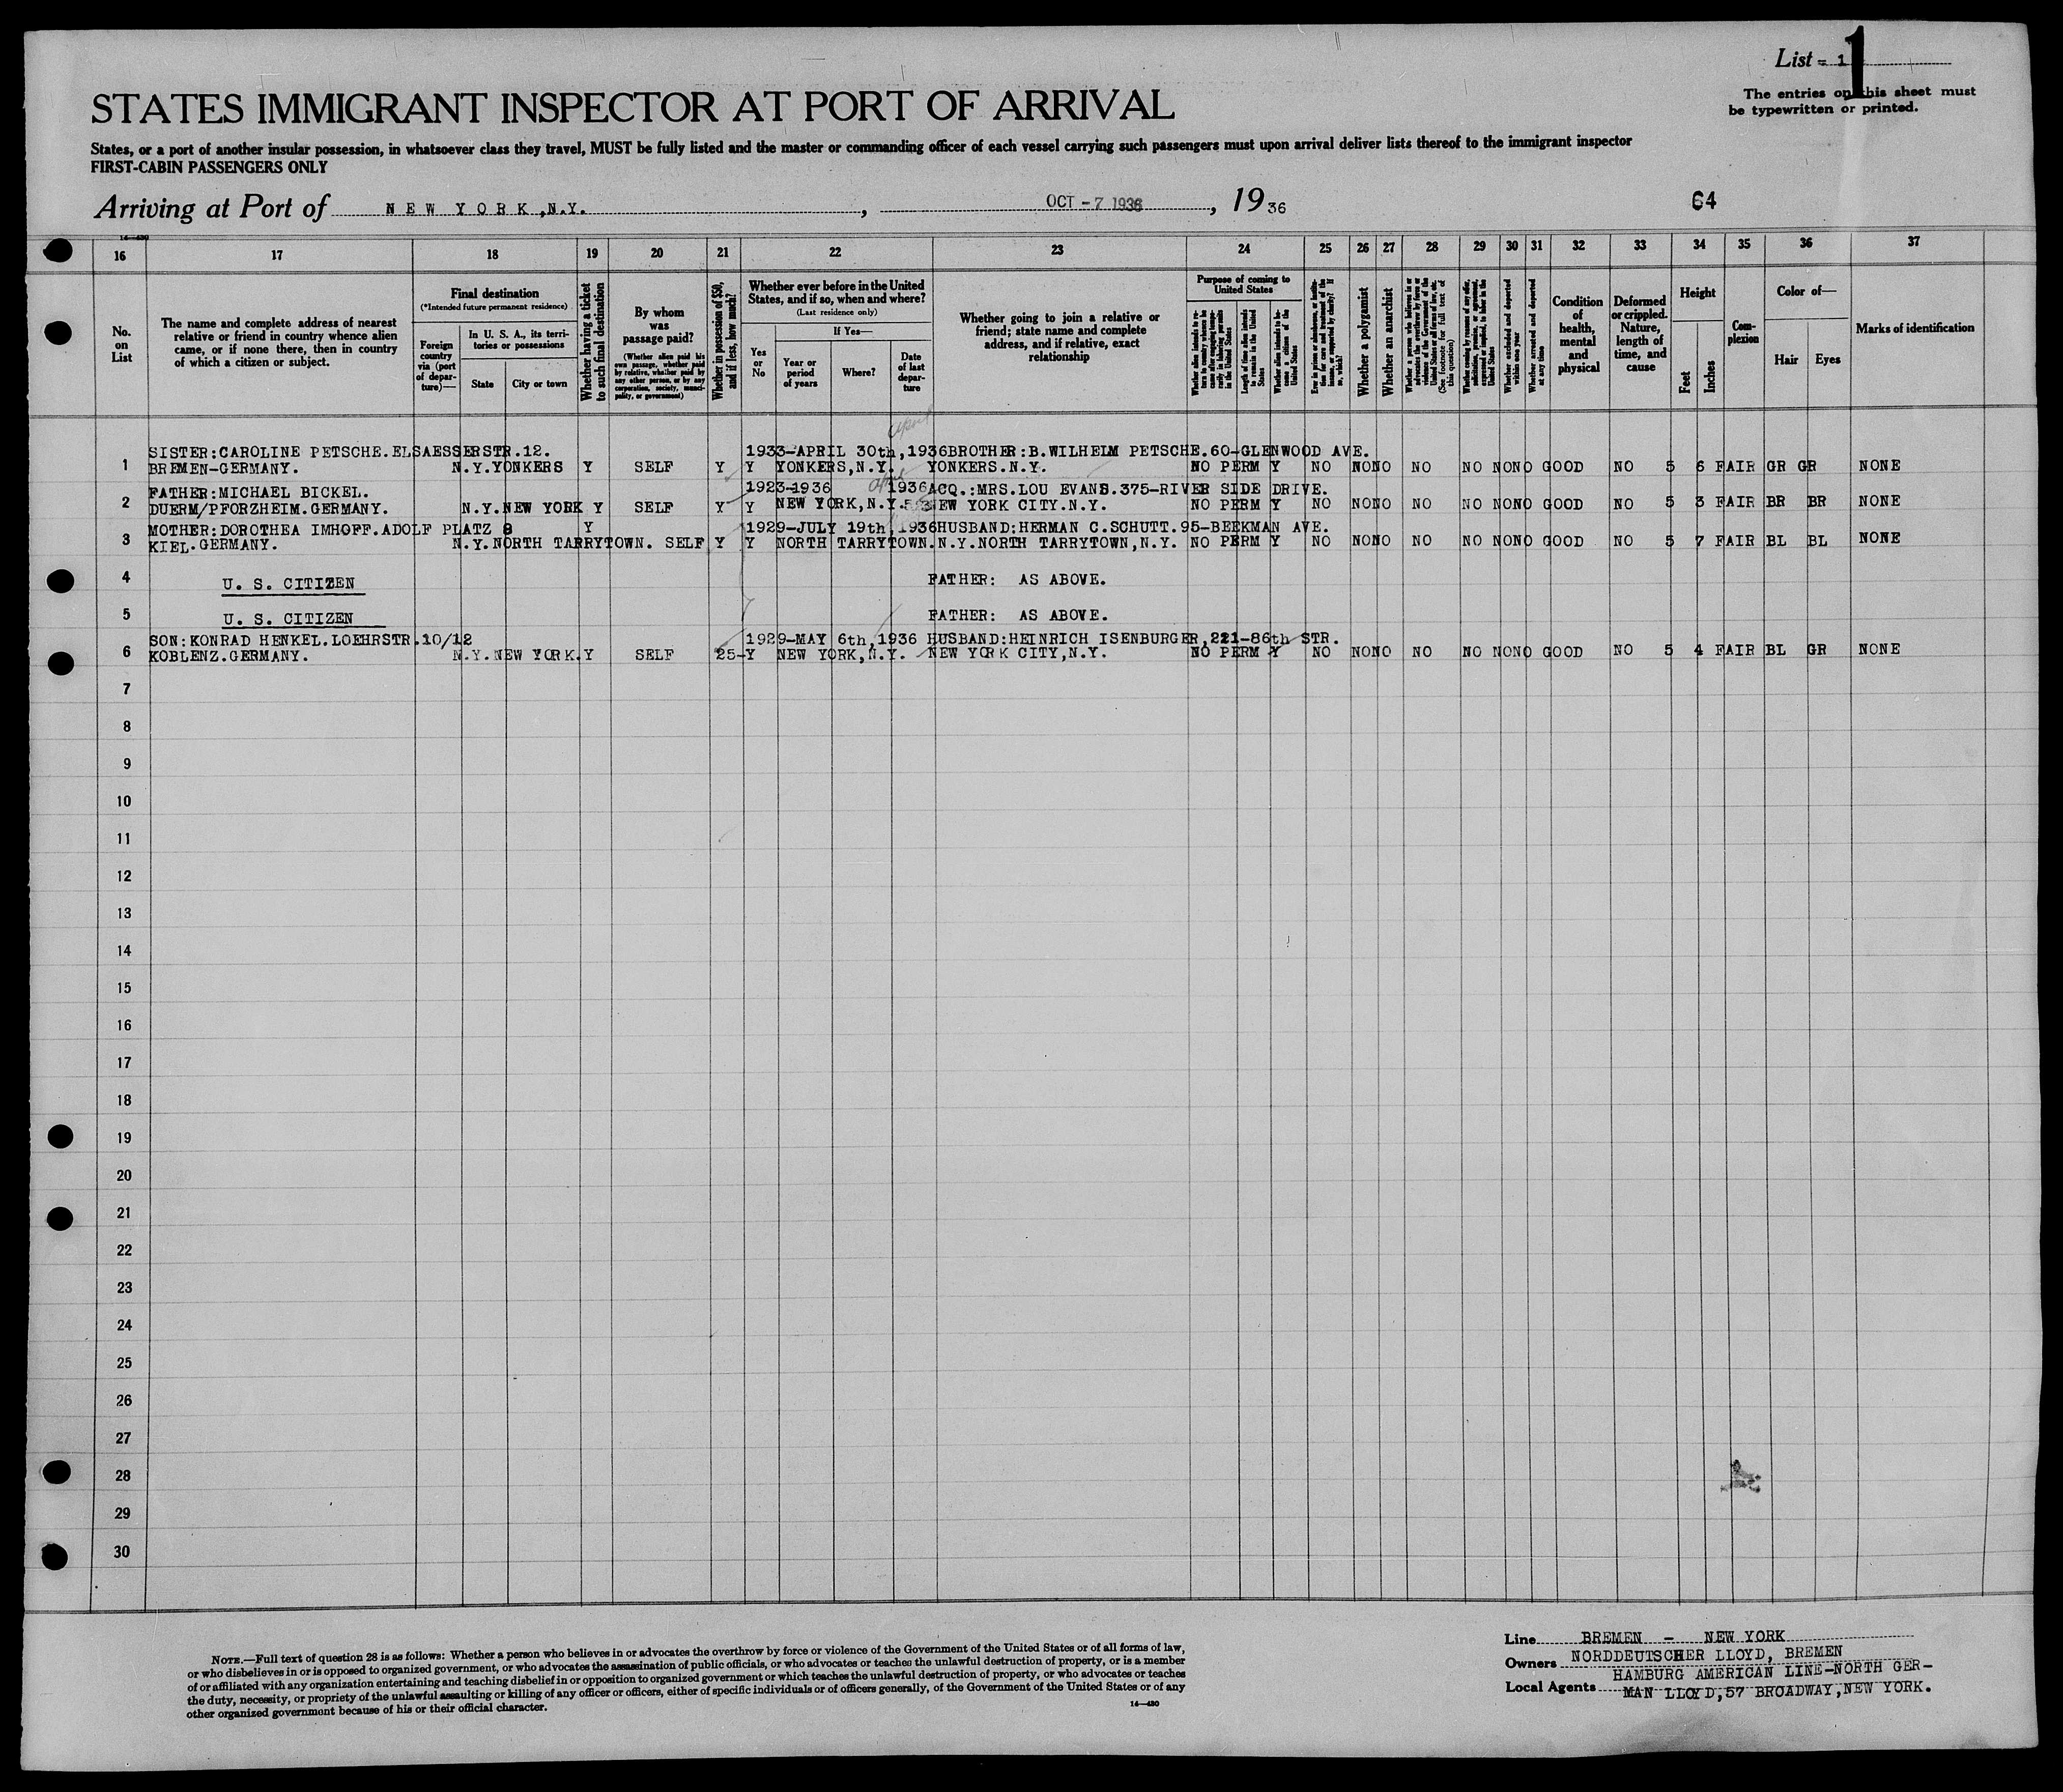 List 1
1
The entries on this sheet must
be typewritten or printed.
STATES IMMIGRANT INSPECTOR AT PORT OF ARRIVAL
States, or a port of another insular possession, in whatsoever class they travel, MUST be fully listed and the master or commanding officer of each vessel carrying such passengers must upon arrival deliver lists thereof to the immigrant inspector
FIRST-CABIN PASSENGERS ONLY
Arriving at Port of NEW YORK, N.Y. , OCT - 7 1936 , 19 36
64
16 17 18 19 20 21 22 23 24 25 26 27 28 29 30 31 32 33 34 35 36 37
No.
on
List
The name and complete address of nearest
relative or friend in country whence alien
came, or if none there, then in country
of which a citizen or subject.
Final destination
(*Intended future permanent residence)
Foreign
country
via (port
of depar-
ture)—
In U. S. A., its terri-
tories or possessions
State
City or town
Whether having a ticket
to such final destination
By whom
was
passage paid?
(Whether alien paid his
own passage, whether paid
by relative, whether paid by
any other person, or by any
corporation, society, munici-
pality, or government)
Whether in possession of $50,
and if less, how much?
Whether ever before in the United
States, and if so, when and where?
(Last residence only)
Yes
or
No
If Yes—
Year or
period
of years
Where?
Date
of last
depar-
ture
Whether going to join a relative or
friend; state name and complete
address, and if relative, exact
relationship
Purpose of coming to
United States
Length of time alien intends
to remain in the United
States
Whether alien intends to be-
come a citizen of the
United States
Whether a polygamist
Whether an anarchist
Whether excluded and deported
within one year
Whether arrested and deported
at any time
Condition
of
health,
mental
and
physical
Deformed
or crippled.
Nature,
length of
time, and
cause
Height
Feet
Inches
Com-
plexion
Color of—
Hair
Eyes
Marks of identification
April
SISTER:CAROLINE PETSCHE.ELSAESSERSTR.12. 1933-APRIL 30th,1936 BROTHER:B.WILHELM PETSCHE.60-GLENWOOD AVE.
1 BREMEN-GERMANY. N.Y. YONKERS Y SELF Y Y YONKERS,N.Y. YONKERS.N.Y. NO PERM Y NO NO NO NO NO NO NO GOOD NO 5 6 FAIR GR GR NONE
FATHER:MICHAEL BICKEL. 1923-1936 1936 ACQ.:MRS.LOU EVANS.375-RIVER SIDE DRIVE.
2 DUERM/PFORZHEIM.GERMANY. N.Y. NEW YORK Y SELF Y Y NEW YORK,N.Y. NEW YORK CITY.N.Y. NO PERM Y NO NO NO NO NO NO NO GOOD NO 5 3 FAIR BR BR NONE
MOTHER:DOROTHEA IMHOFF.ADOLF PLATZ 8 Y 1929-JULY 19th,1936 HUSBAND:HERMAN C.SCHUTT.95-BEEKMAN AVE.
3 KIEL.GERMANY. N.Y. NORTH TARRYTOWN. SELF Y Y NORTH TARRYTOWN.N.Y. NORTH TARRYTOWN,N.Y. NO PERM Y NO NO NO NO NO NO NO GOOD NO 5 7 FAIR BL BL NONE
4 U. S. CITIZEN FATHER: AS ABOVE.
5 U. S. CITIZEN FATHER: AS ABOVE.
SON:KONRAD HENKEL.LOEHRSTR.10/12 1929-MAY 6th,1936 HUSBAND:HEINRICH ISENBURGER,221-86th STR.
6 KOBLENZ.GERMANY. N.Y. NEW YORK. Y SELF 25- Y NEW YORK,N.Y. NEW YORK CITY,N.Y. NO PERM Y NO NO NO NO NO NO NO GOOD NO 5 4 FAIR BL GR NONE
7
8
9
10
11
12
13
14
15
16
17
18
19
20
21
22
23
24
25
26
27
28
29
30
NOTE.—Full text of question 28 is as follows: Whether a person who believes in or advocates the overthrow by force or violence of the Government of the United States or of all forms of law,
or who disbelieves in or is opposed to organized government, or who advocates the assassination of public officials, or who advocates or teaches the unlawful destruction of property, or is a member
of or affiliated with any organization entertaining and teaching disbelief in or opposition to organized government or which teaches the unlawful destruction of property, or who advocates or teaches
the duty, necessity, or propriety of the unlawful assaulting or killing of any officer or officers, either of specific individuals or of officers generally, of the Government of the United States or of any
other organized government because of his or their official character.
14—430
Line BREMEN - NEW YORK
Owners NORDDEUTSCHER LLOYD, BREMEN
HAMBURG AMERICAN LINE-NORTH GER-
Local Agents MAN LLOYD,57 BROADWAY,NEW YORK.